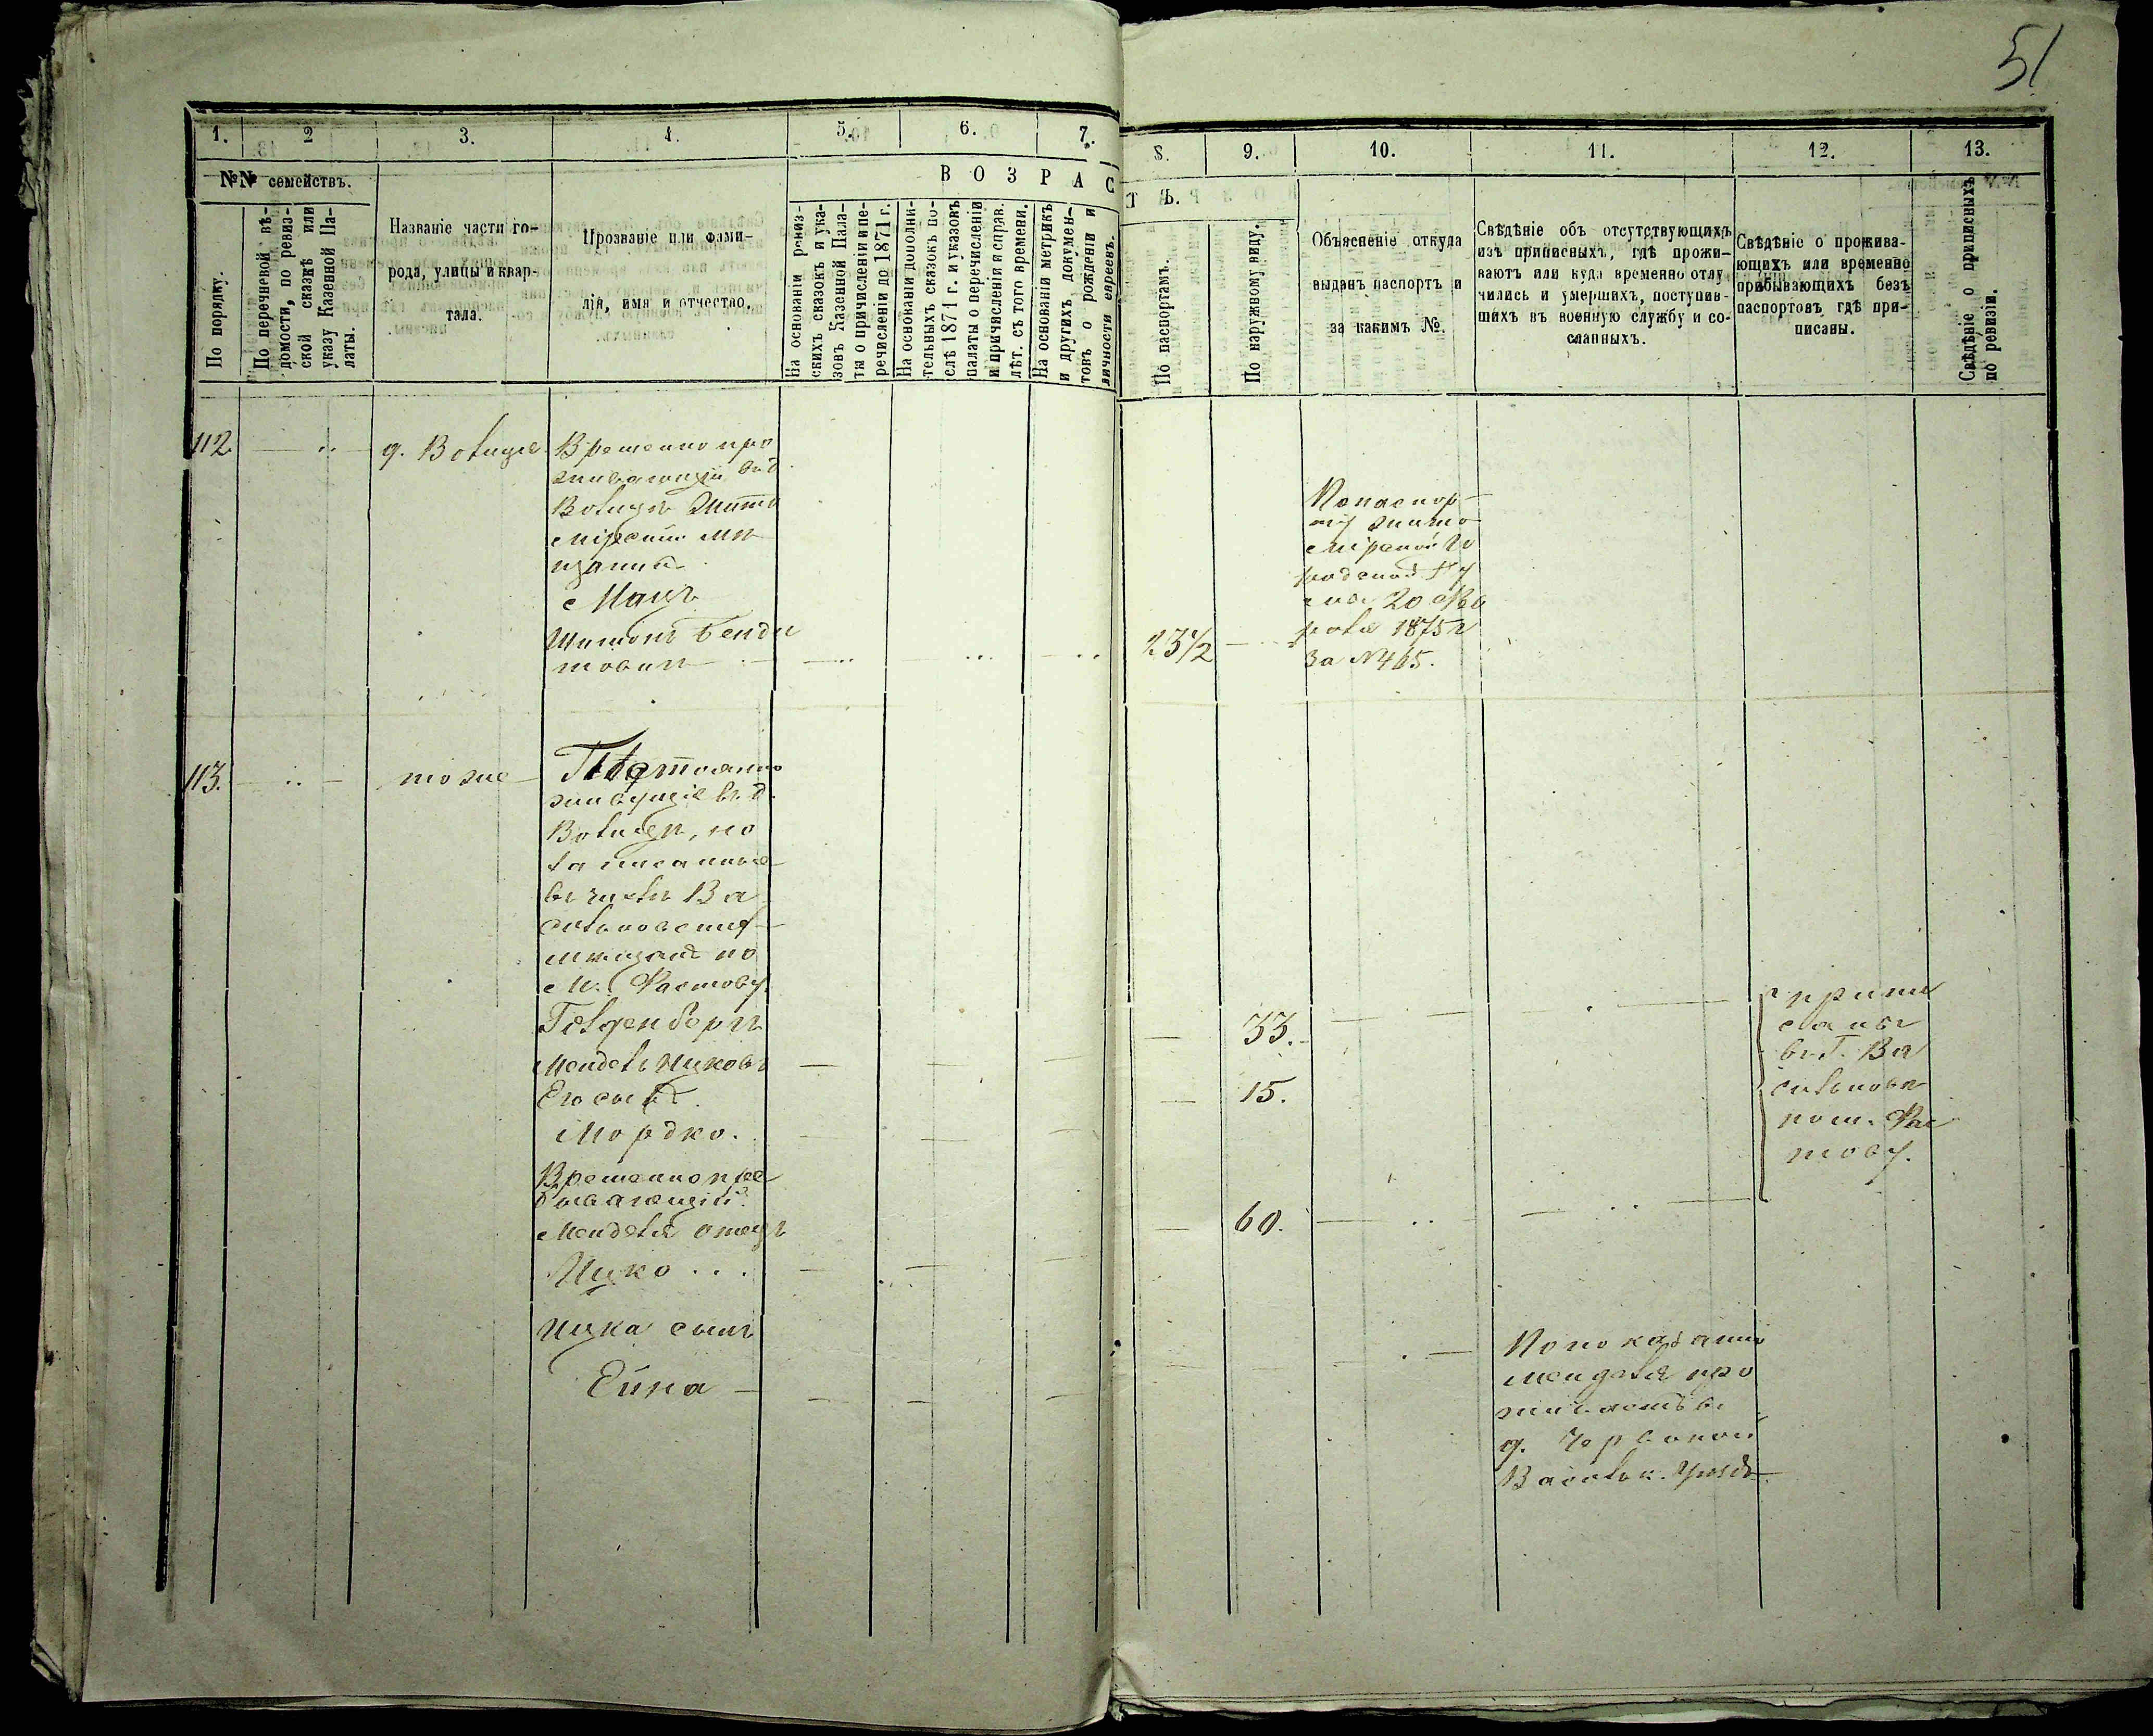 51
1. 2 3. 4. 5. 6. 7. 8. 9. 10. 11. 12. 13.
№№ семействъ.
По порядку.
По перечневой вѣ-
домости, по ревиз-
ской сказкѣ или
указу Казенной Па-
латы.
Названіе части го-
рода, улицы и квар-
тала.
Прозваніе или фами-
лія, имя и отчество.
ВОЗРАСТЪ.
На основаніи ревиз-
скихъ сказокъ и ука-
зовъ Казенной Пала-
ты о причисленіи и пе-
речисленіи до 1871 г.
На основаніи дополни-
тельныхъ сказокъ по-
слѣ 1871 г. и указовъ
палаты о перечисленіи
и причисленіи и справ.
лѣт. съ того времени.
На основаніи метрикъ
и другихъ докумен-
товъ о рожденіи и
личности евреевъ.
По паспортамъ.
По наружному виду.
Объясненіе откуда
выданъ паспортъ и
за какимъ №.
Свѣдѣніе объ отсутствующихъ
изъ приписныхъ, гдѣ прожи-
ваютъ или куда временно отлу
чились и умершихъ, поступив-
шихъ въ военную службу и со-
сланныхъ.
Свѣдѣніе о прожива-
ющихъ или временно
прибывающихъ безъ
паспортовъ гдѣ при-
писаны.
Свѣдѣніе о приписныхъ
по ревизіи.
112. д. Волица
Временно про
живающій въ д.
Волицѣ Жито
мірскій мѣ
щанинъ
Мацъ
Шимонъ Бенди
товичъ
23½
По паспор-
ту Жито
мірской Го
родской Ду
мы 20 Фев
раля 1875 г
За №465.
113. тоже
Постоянно
живущіе въ д.
Волицѣ, но
записанные
въ числѣ Ва
сильковскихъ
мѣщанъ по
м. Фастову
Гольденбергъ
Мендель Ицковъ
33.
Его сынъ
Мордко.
15.
Временно пре
бывающій
Менделя отецъ
Ицко . . .
60.
припи
саны
въ г. Ва
сильковѣ
по м. Фас
тову.
Ицка сынъ
Ейна
По показанію
Менделя про
живаетъ въ
д.
Васильк. Уѣзда.